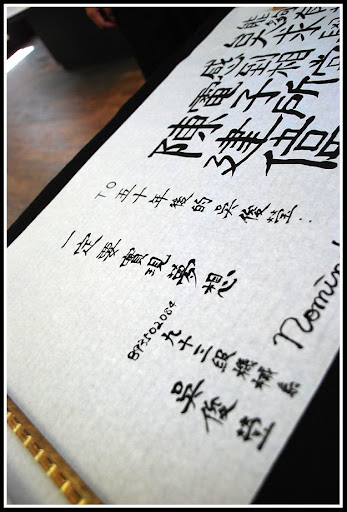 感到相當
電子所
陳建
TO 五十年後的 吳俊瑩..
一定要實現夢想
B93502084
九十三級機械系
吳俊瑩